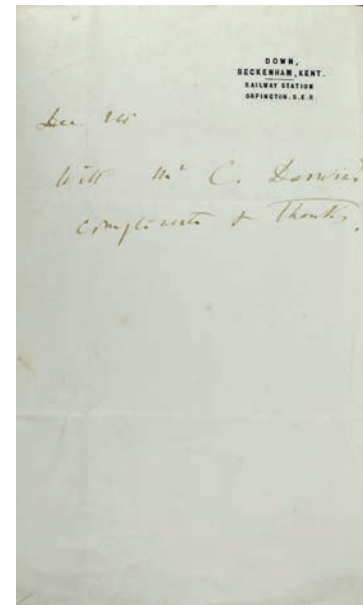 DOWN,
BECKENHAM, KENT.
RAILWAY STATION
ORPINGTON. S.E.R.
With Mr C. Darwin's
compliments & Thanks.